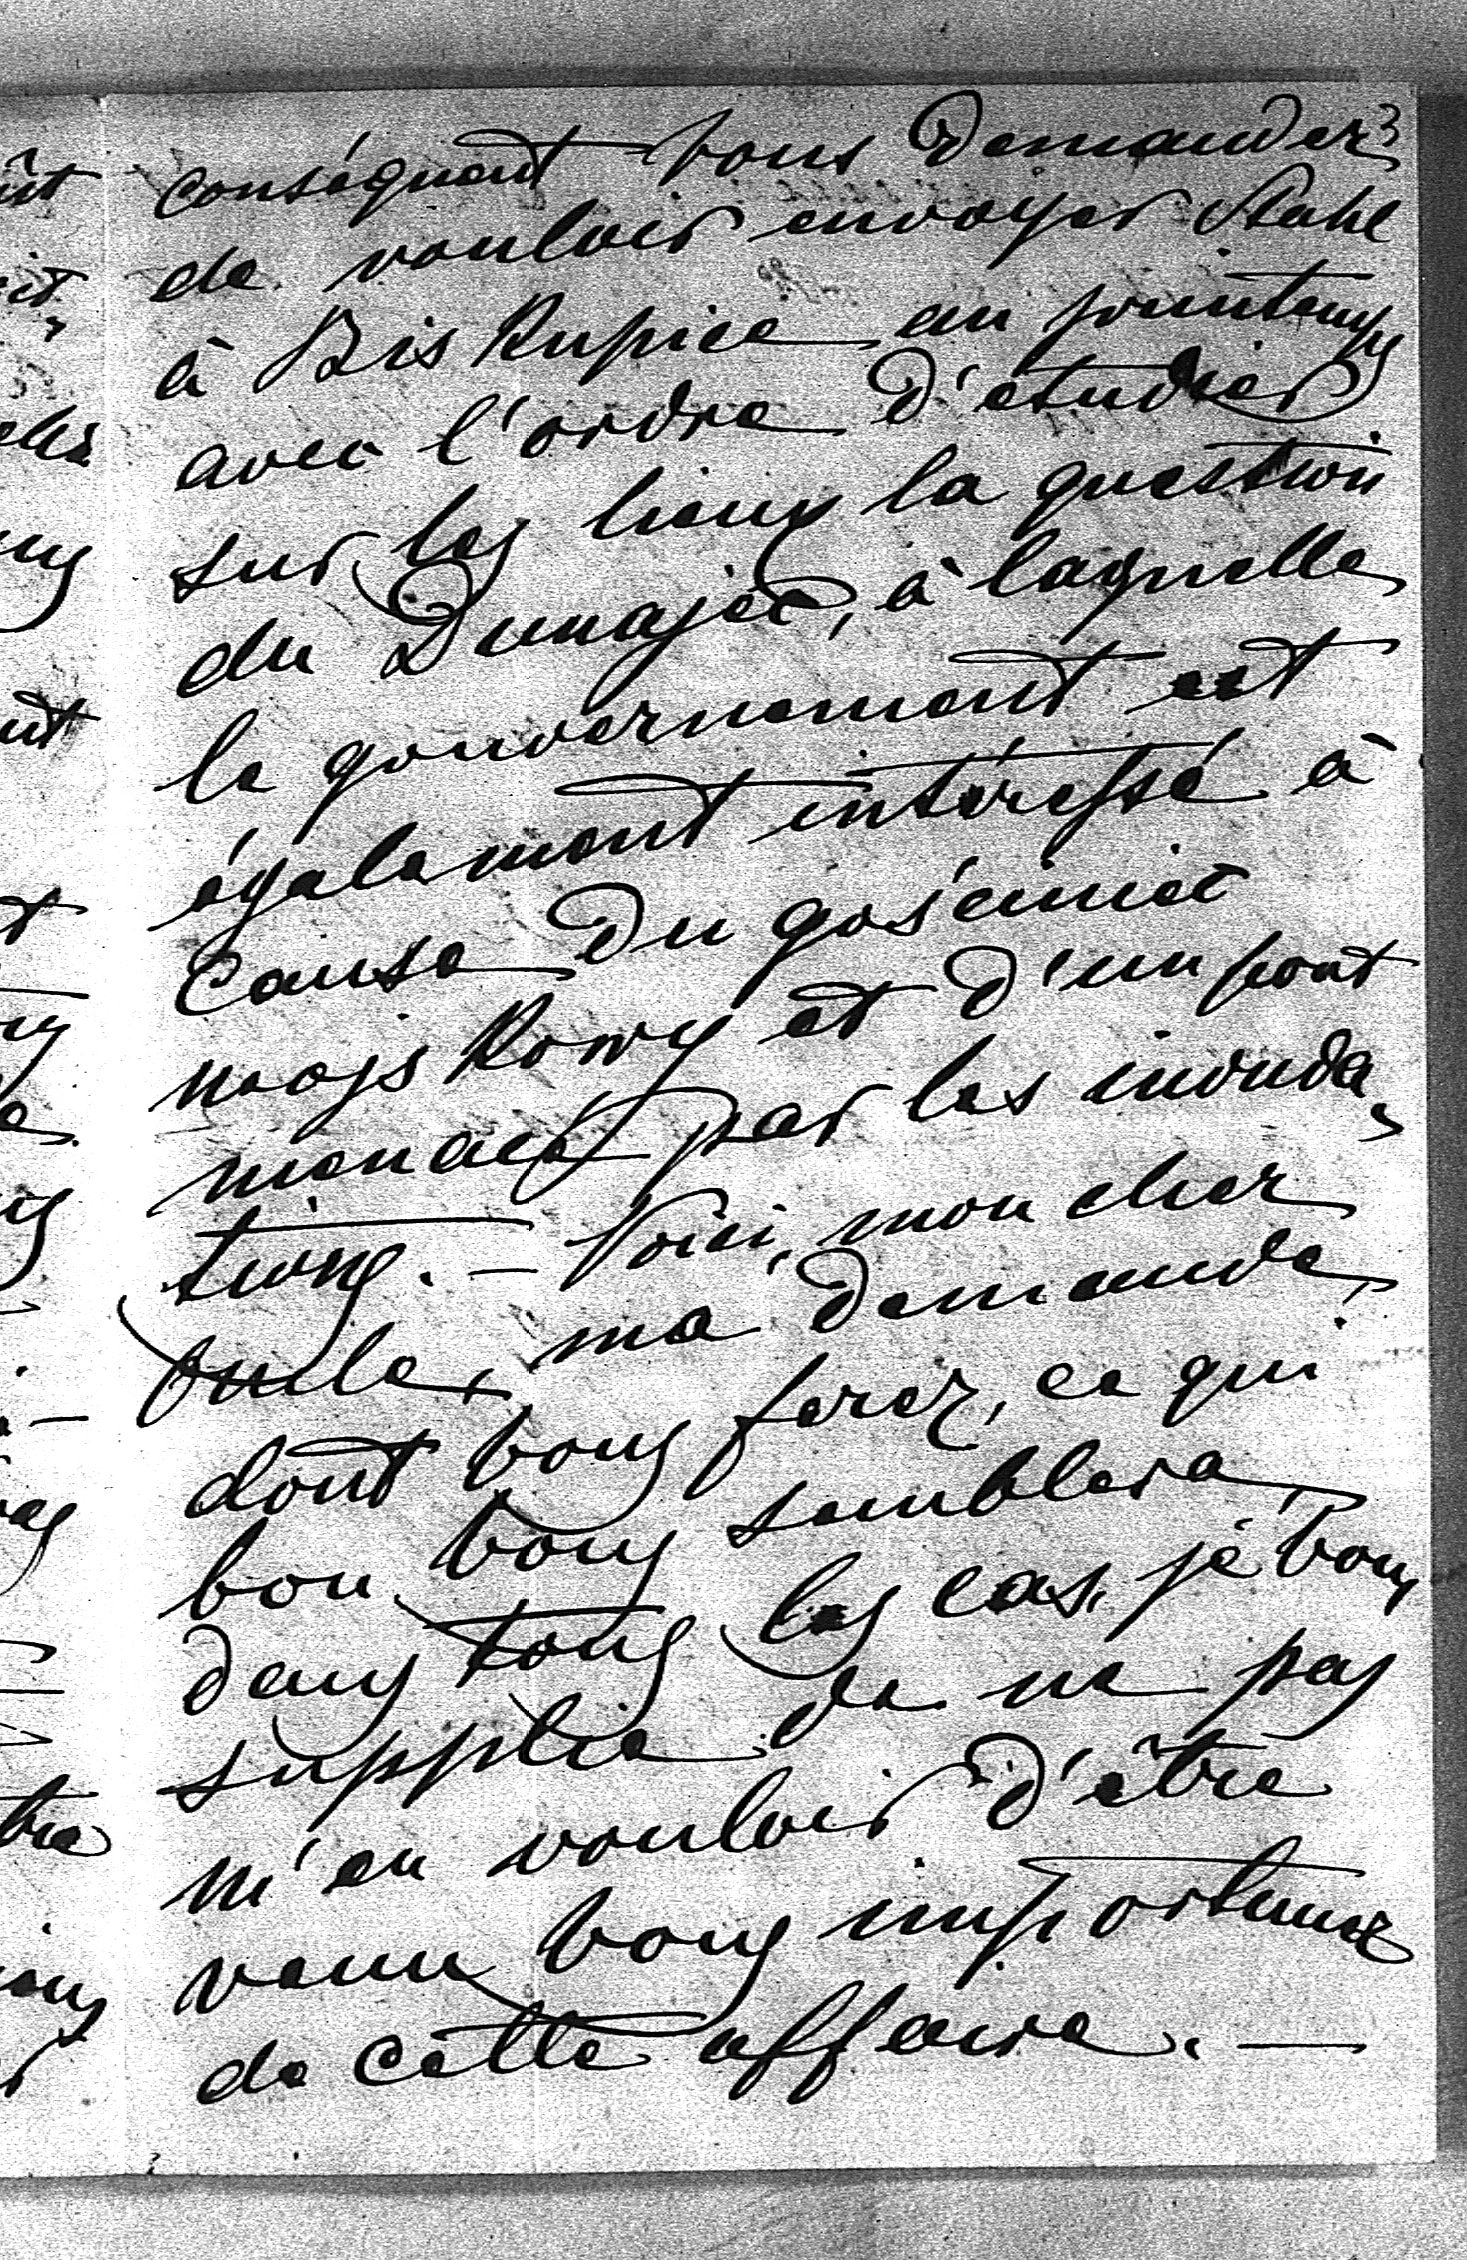 conséquent vous demander
de vouloir envoyer Stahl
à Biskupice au printemps
avec l'ordre d'étudier
sur les lieux la question
du Dunajec, à laquelle
le gouvernement est
également intéressé à
cause du gościniec
wojskowy et d'un pont
menacés par les inonda-
tions. — Voici, mon cher
oncle, ma demande,
dont vous ferez, ce qui
bon vous semblera,
dans tous les cas, je vous
supplie de ne pas
m'en vouloir d'être
venu vous importuner
de cette affaire. —